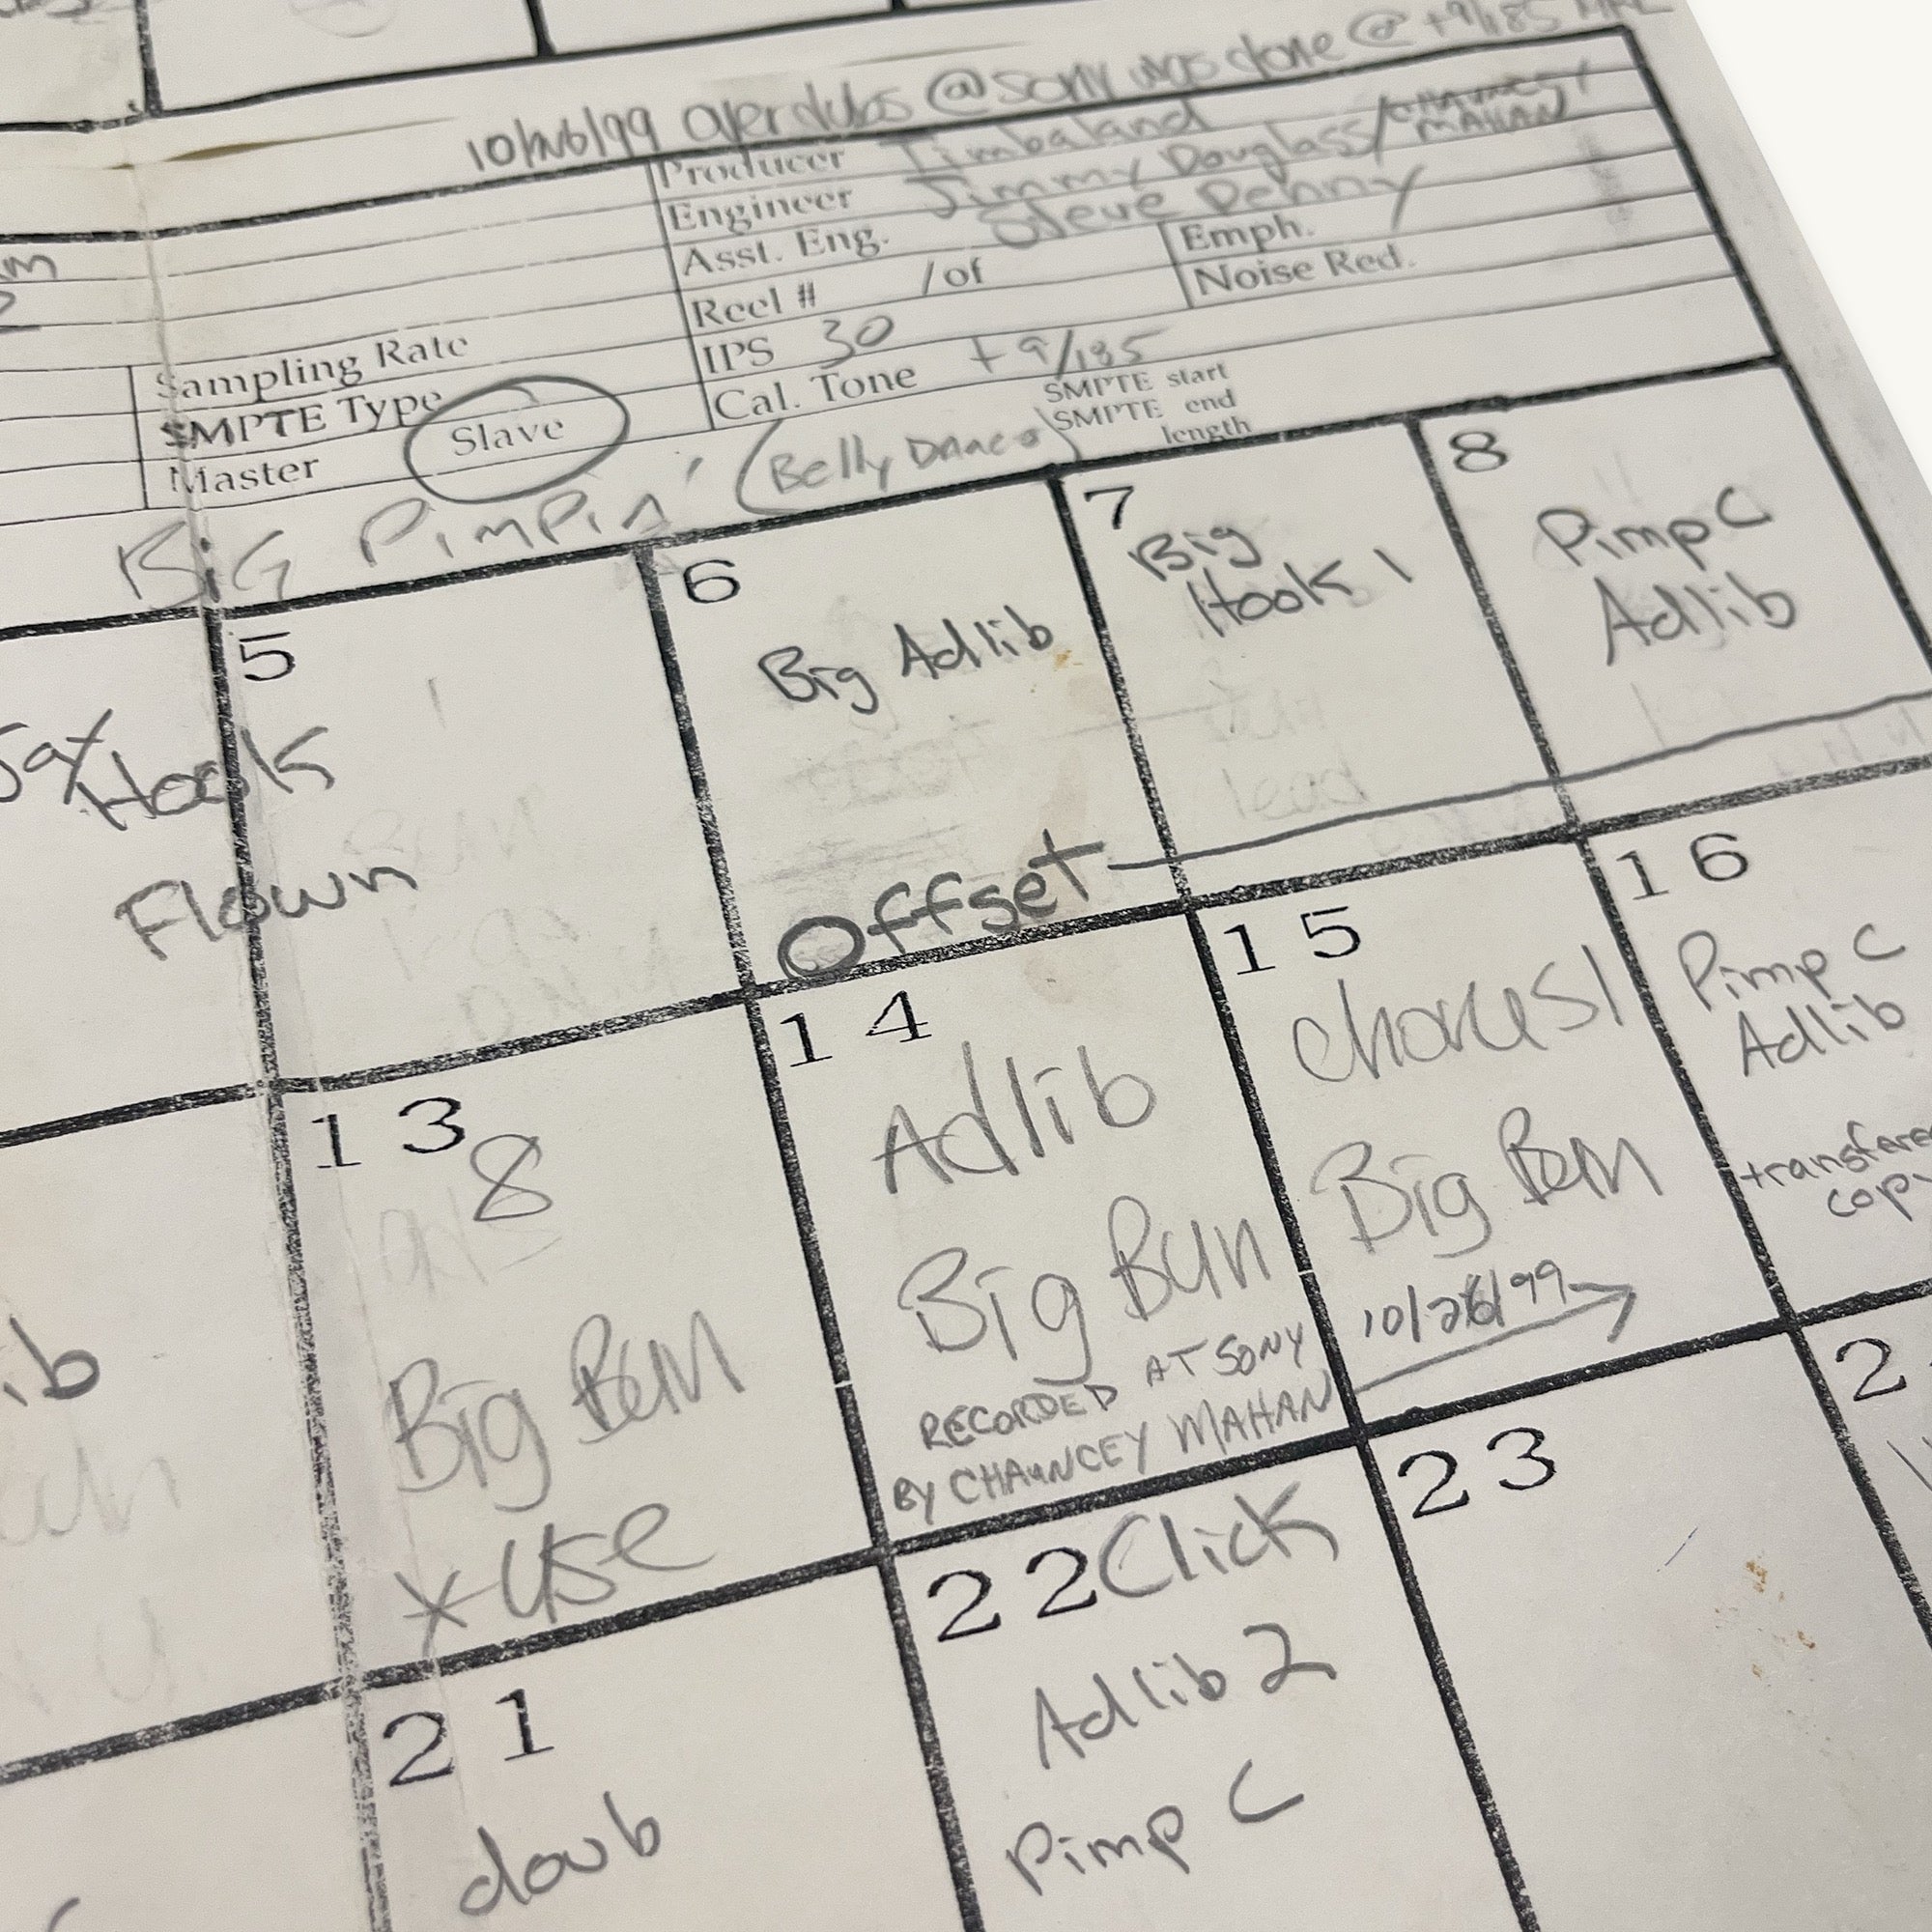 10/26/99 overdubs @ Sony was done @ +9/185
Producer Timbaland
Engineer Jimmy Douglass/CHAUNCEY MAHAN
Asst. Eng. Steve Penny
Reel # /of
Emph.
Noise Red.
Sampling Rate
IPS 30
SMPTE Type
Cal. Tone +9/185
Master Slave
SMPTE start
SMPTE end
length
BiG PimPin' (Belly Dance)
5
6
7
8
Jay Hook
Flown
Big Adlib
Big
Hook 1
Pimp C
Adlib
lead
Offset
13
14
15
16
8
Big Bun
* Use
Adlib
Big Bun
RECORDED AT SONY
BY CHAUNCEY MAHAN
chorus 1
Big Bun
10/26/99
Pimp C
Adlib
21
22
23
doub
Click
Adlib 2
Pimp C